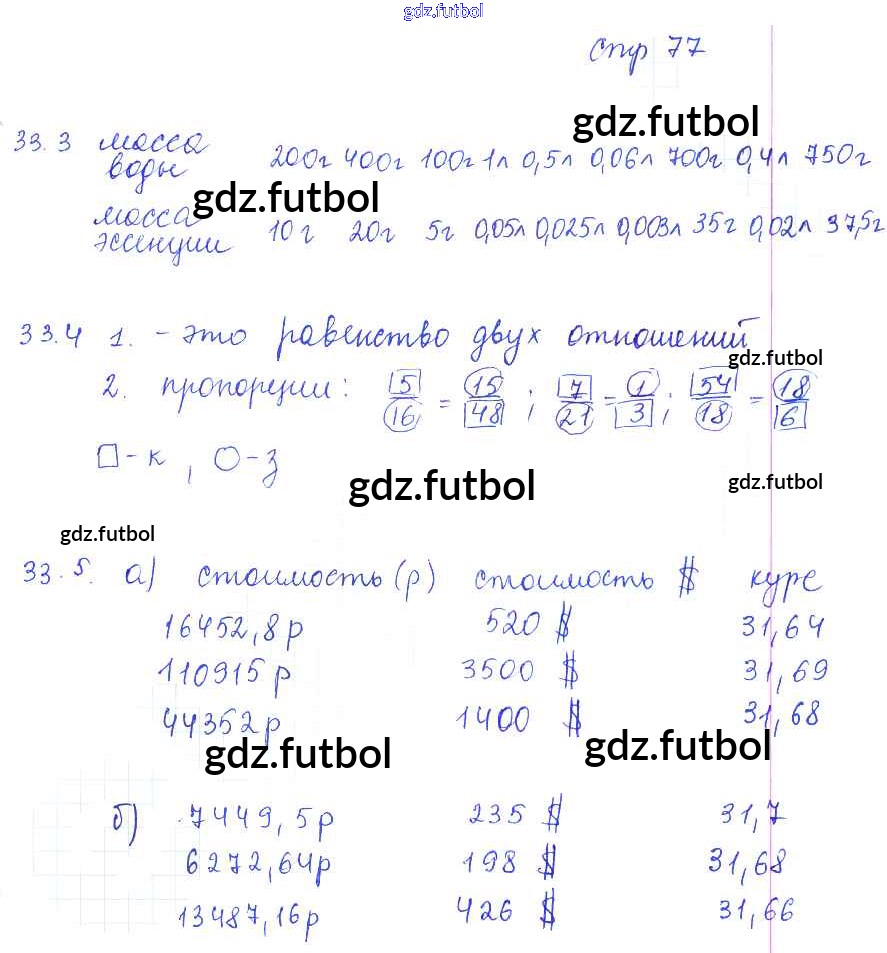 gdz.futbol
стр 77
gdz.futbol
33.3 масса воды 200г 400г 100г 1л 0,5л 0,06л 700г 0,4л 750г
gdz.futbol
масса эссенции 10г 20г 5г 0,05л 0,025л 0,003л 35г 0,02л 37,5г
33.4 1. - это равенство двух отношений
gdz.futbol
2. пропорции: 5/16 = 15/48 ; 7/21 = 1/3 ; 54/18 = 18/6
□ - к , ○ - з
gdz.futbol
gdz.futbol
gdz.futbol
33.5. а) стоимость (р) стоимость $ курс
16452,8 р 520 $ 31,64
110915 р 3500 $ 31,69
44352 р 1400 $ 31,68
gdz.futbol
gdz.futbol
б) 7449,5 р 235 $ 31,7
6272,64р 198 $ 31,68
13487,16р 426 $ 31,66